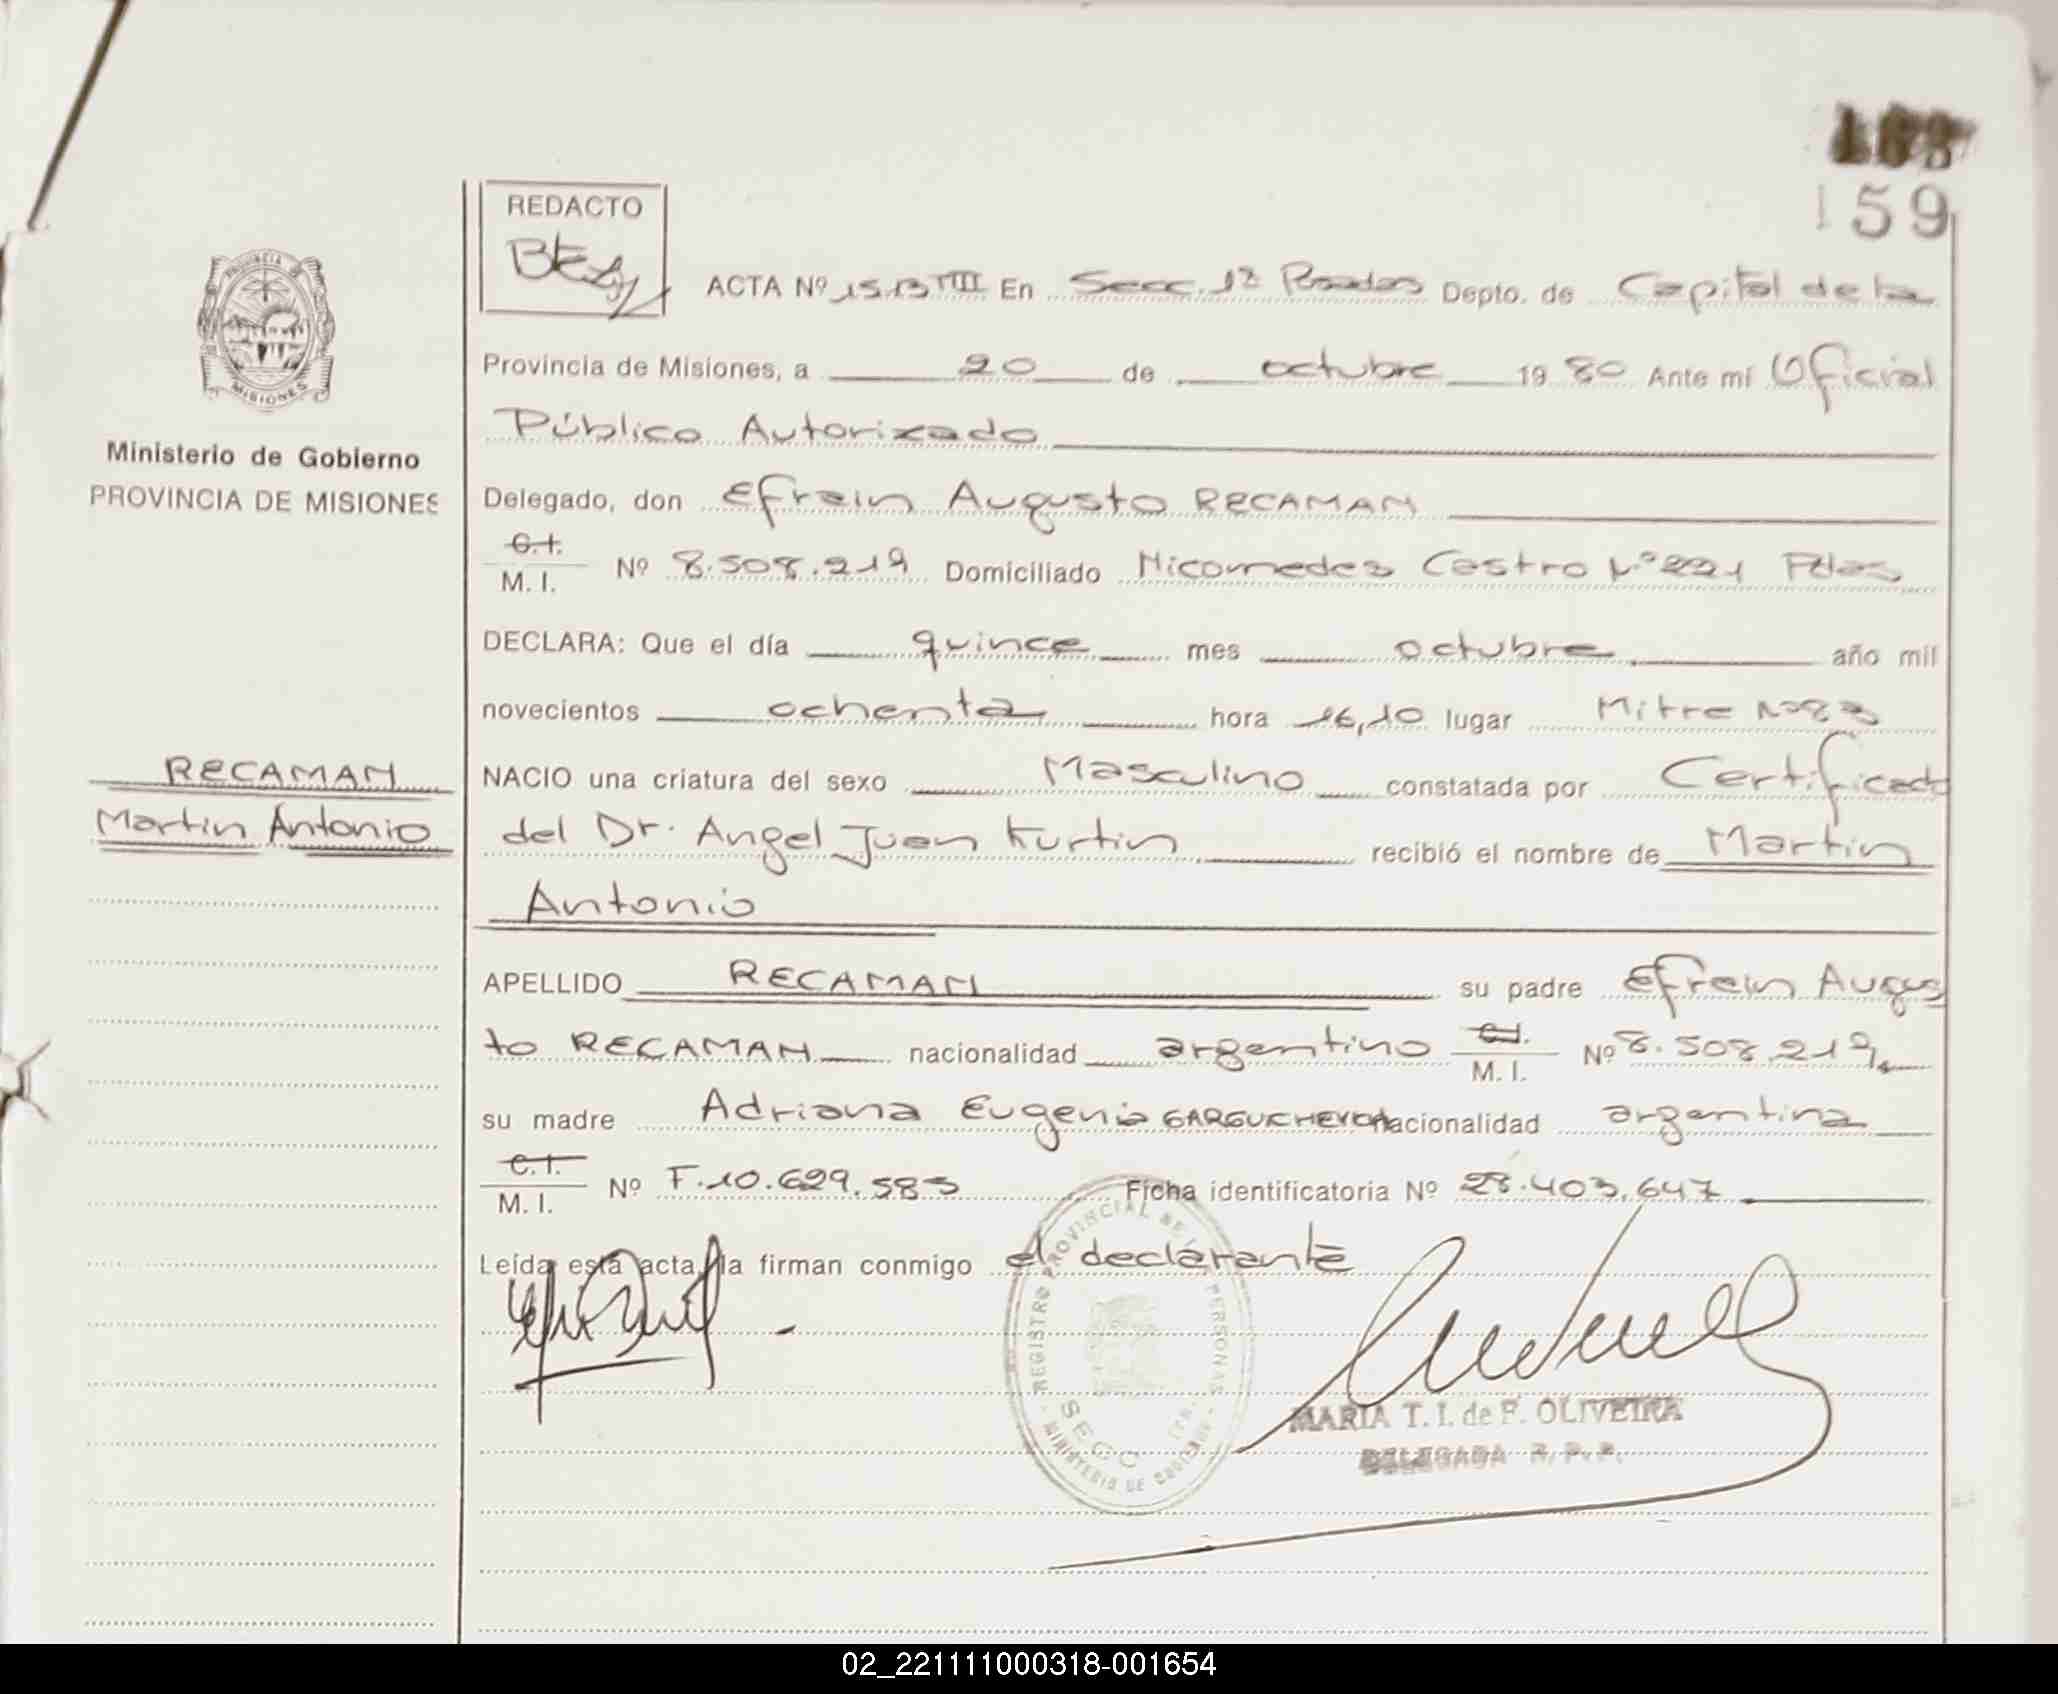 159
REDACTO
ACTA Nº 1513 VIII En Secc. 1ª Posadas Depto. de Capital de la
Provincia de Misiones, a 20 de octubre 1980 Ante mí Oficial
Público Autorizado
Delegado, don Efrain Augusto RECAMAN
C.I.
M. I. Nº 8.508.219 Domiciliado Nicomedes Castro Nº 221 Pdas
DECLARA: Que el día quince mes octubre año mil
novecientos ochenta hora 16,10 lugar Mitre Nº 83
NACIO una criatura del sexo Masculino constatada por Certificado
del Dr. Angel Juan Kurtin recibió el nombre de Martin
Antonio
APELLIDO RECAMAN su padre Efrein Augus
to RECAMAN nacionalidad argentino C.I.
M. I. Nº 8.508.219
su madre Adriana Eugenia nacionalidad argentina
C.I.
M. I. Nº F.10.629.583 Ficha identificatoria Nº 28.403.647
Leída esta acta, la firman conmigo el declarante
PROVINCIA DE MISIONES
Ministerio de Gobierno
PROVINCIA DE MISIONES
RECAMAN
Martin Antonio
REGISTRO PROVINCIAL DE PERSONAS
SECC
MINISTERIO DE GOBIERNO
MARIA T. I. de F. OLIVEIRA
DELEGADA R. P. P.
02_221111000318-001654